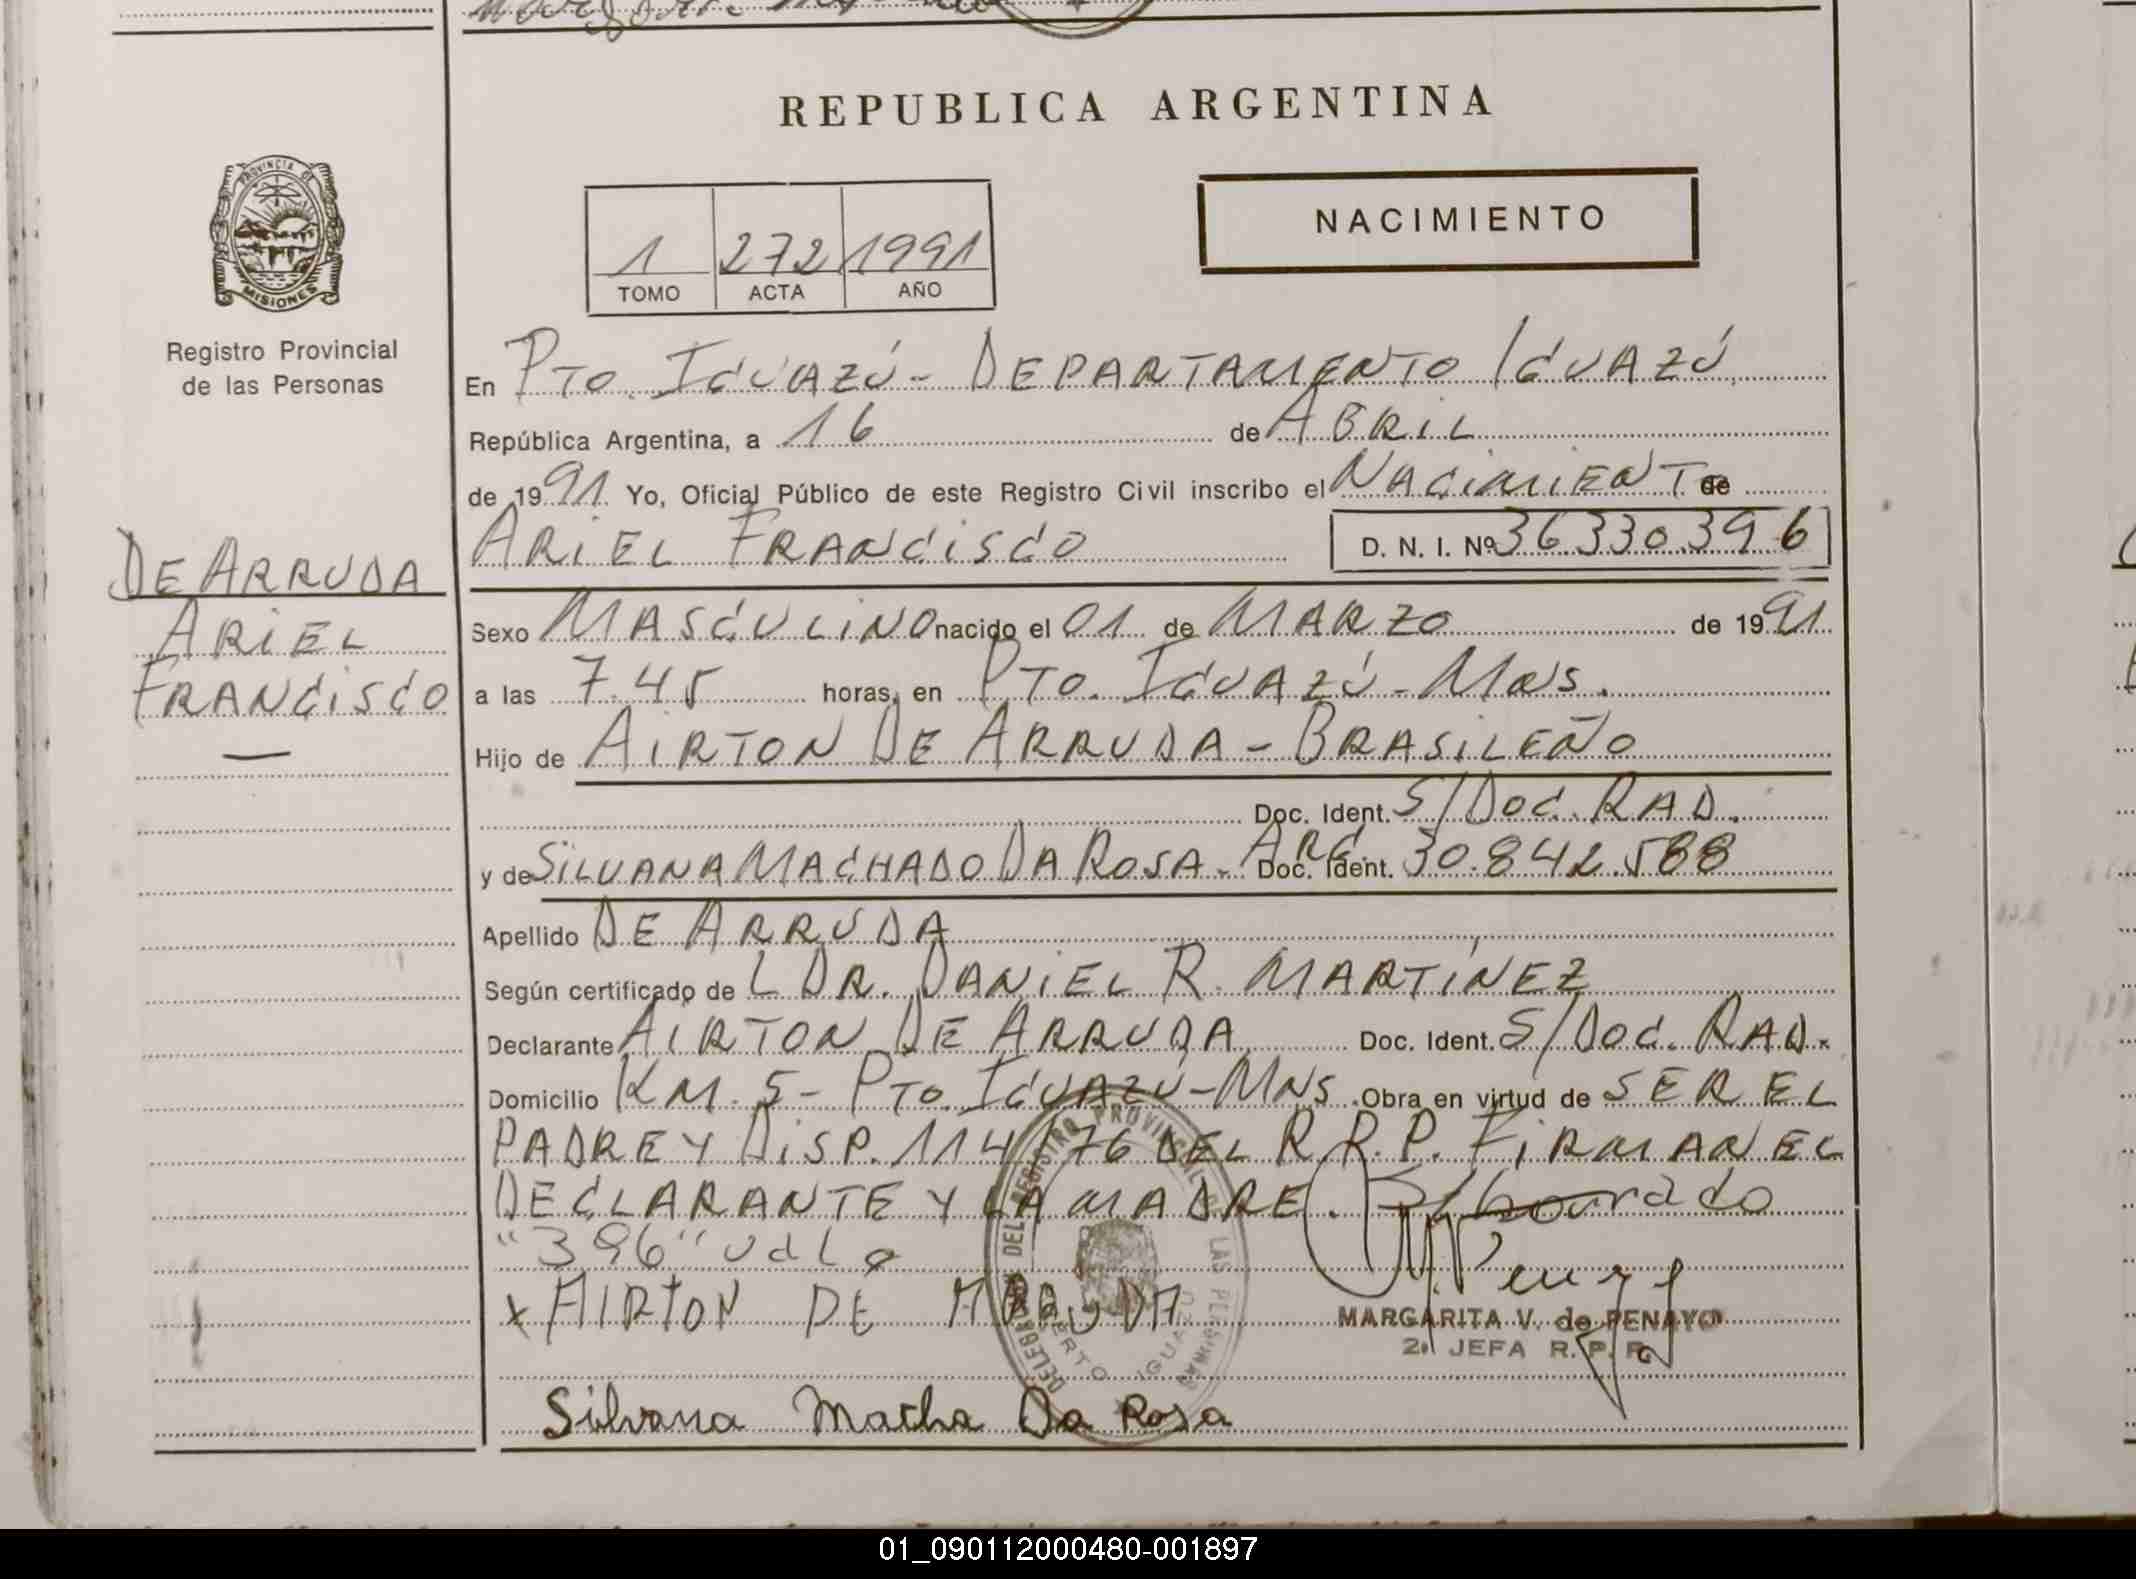 REPUBLICA ARGENTINA
PROVINCIA DE
MISIONES
Registro Provincial
de las Personas
1 272 1991
TOMO ACTA AÑO
NACIMIENTO
En PTO. IGUAZÚ - DEPARTAMENTO IGUAZÚ
República Argentina, a 16 de ABRIL
de 1991 Yo, Oficial Público de este Registro Civil inscribo el NACIMIENTO de
ARIEL FRANCISCO D. N. I. Nº 36.330.396
DE ARRUDA
ARIEL
FRANCISCO
Sexo MASCULINO nacido el 01 de MARZO de 1991
a las 7.45 horas, en PTO. IGUAZÚ - MNS.
Hijo de AIRTON DE ARRUDA - BRASILEÑO
Doc. Ident. S/DOC. RAD.
y de SILVANA MACHADO DA ROSA - ARG. Doc. Ident. 30.842.588
Apellido DE ARRUDA
Según certificado de L DR. DANIEL R. MARTÍNEZ
Declarante AIRTON DE ARRUDA Doc. Ident. S/DOC. RAD.
Domicilio KM. 5 - PTO. IGUAZÚ - MNS. Obra en virtud de SER EL
PADRE Y DISP. 114/76 DEL R.R.P. FIRMAN EL
DECLARANTE Y LA MADRE.
"396" vale
x AIRTON DE ARRUDA
MARGARITA V. de PENAYO
2ª JEFA R. P. P.
DEL REGISTRO PROVINCIAL DE LAS PERSONAS
PUERTO IGUAZU
Silvana Macha Da Rosa
01_090112000480-001897